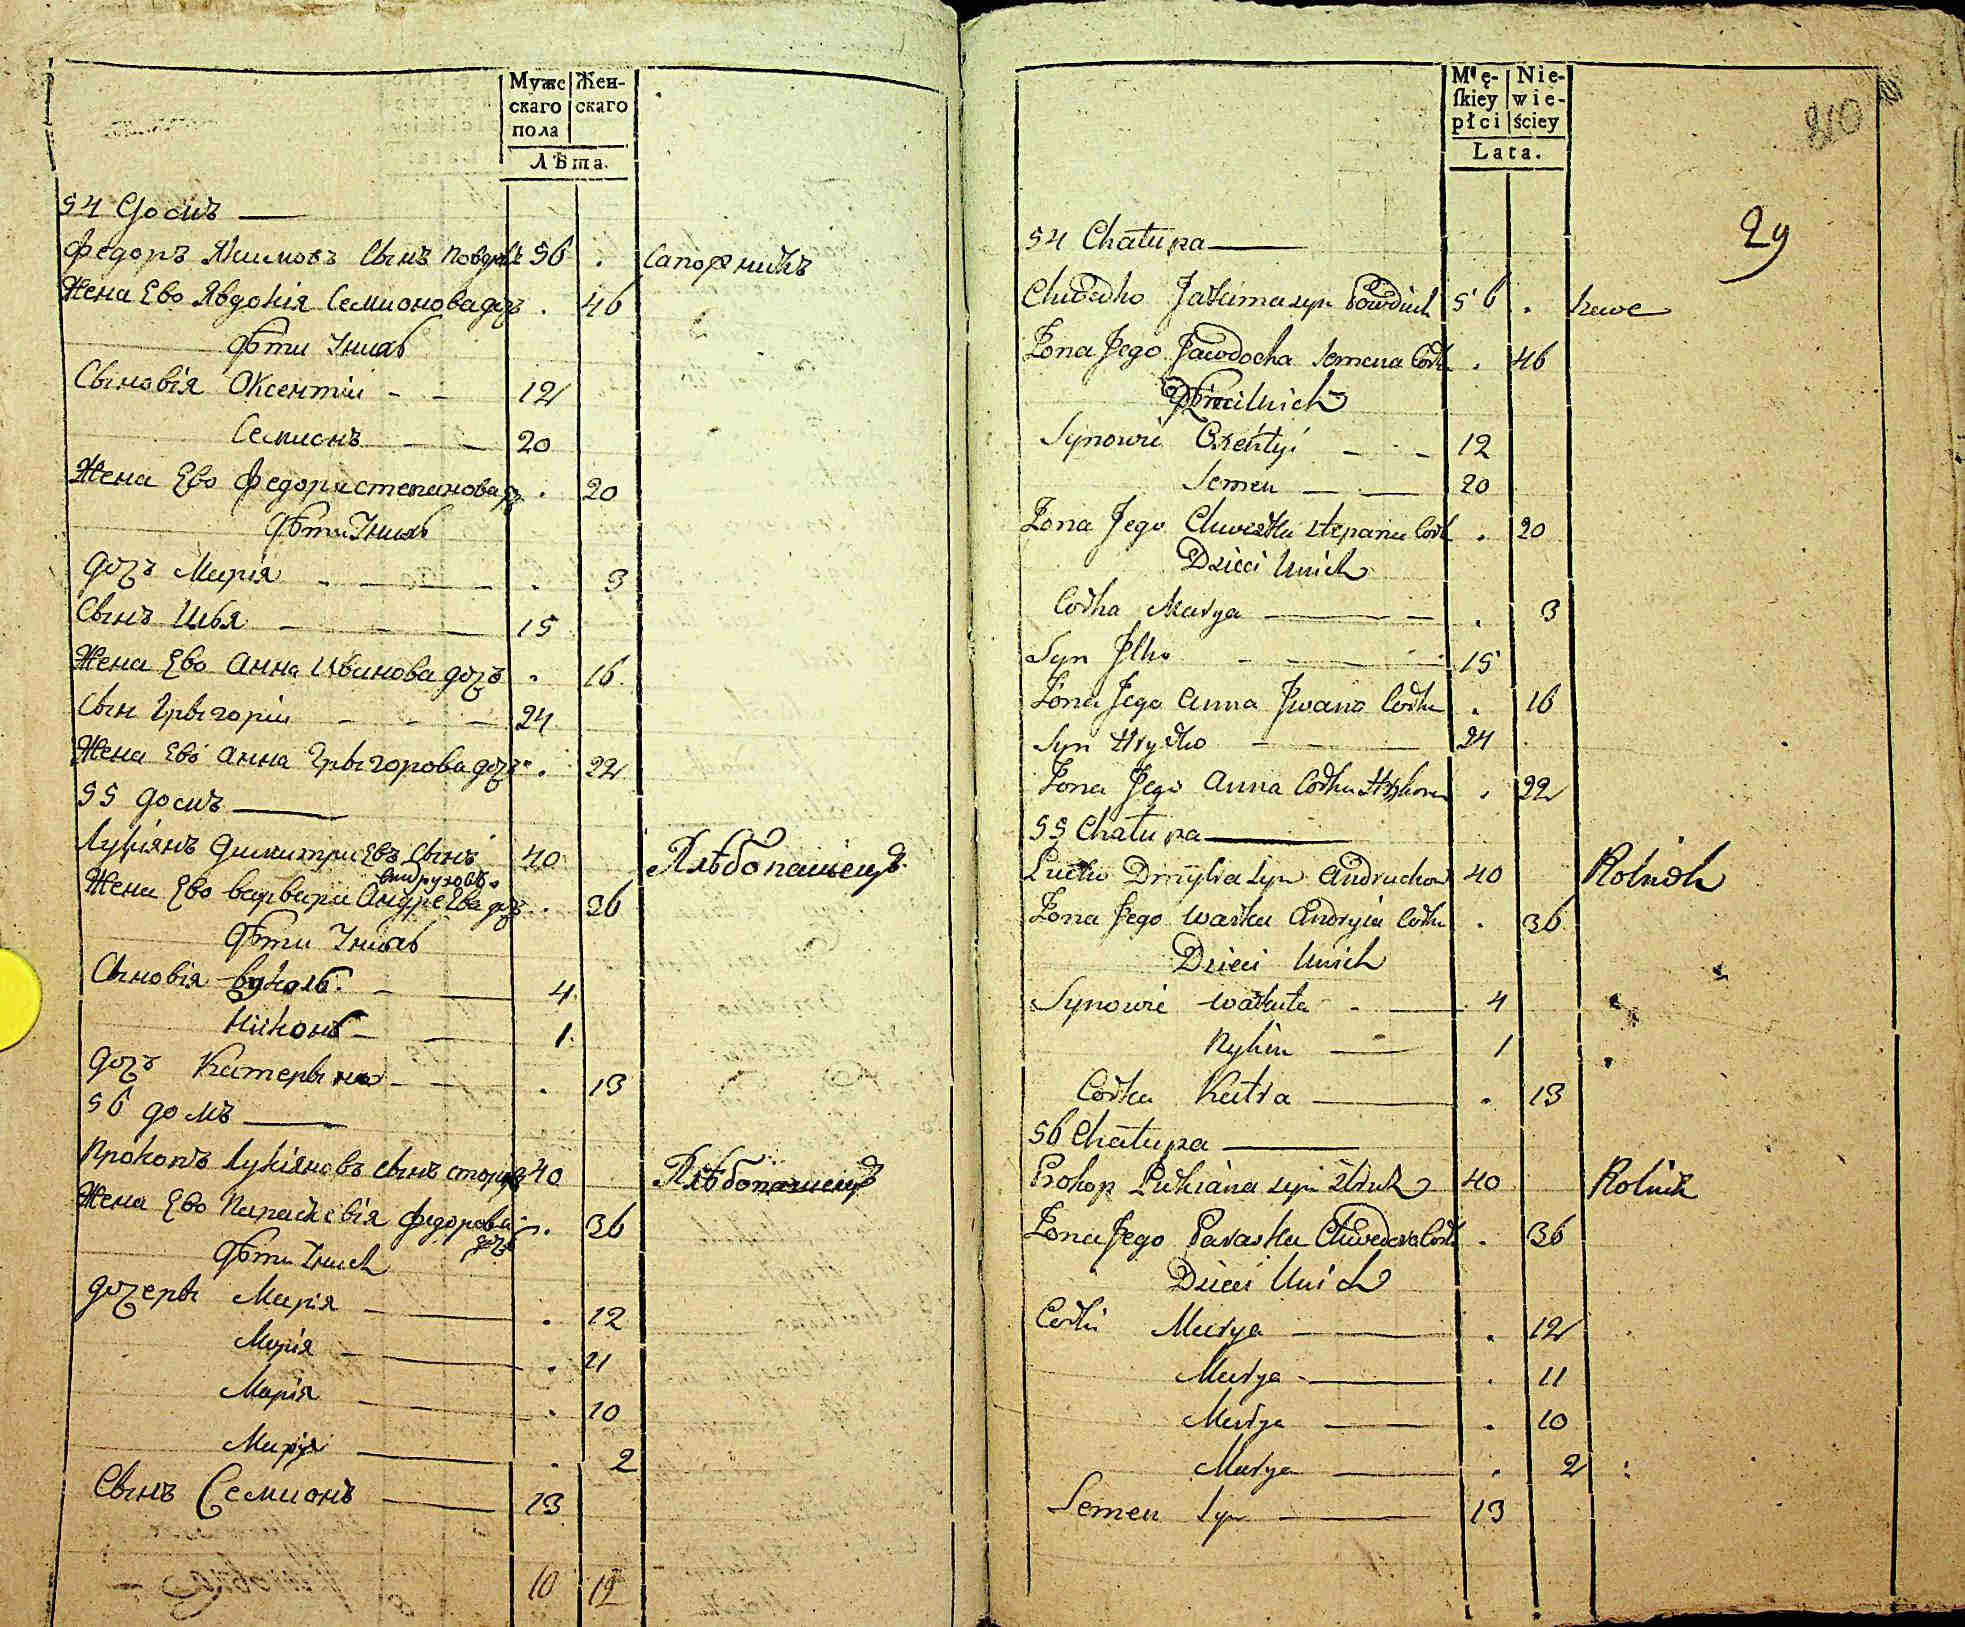 Муже Жен-
скаго скаго
пола
Лѣта.
54 Домъ
Федоръ Якимовъ Сынъ 56 Сапожникъ
Жена Ево Явдокія Семионова доч 46
Дѣти Ӡнихъ
Сыновія Оксентіи 12
Семионъ 20
Жена Ево Федора степанова 20
Дѣти Ӡнихъ
Дочъ Марія 3
Сынъ Илья 15
Жена Ево Анна Иванова дочъ 16
Сын Грыгоріи 24
Жена Ево Анна Грыгорова дочъ 22
55 домъ
Лукіянъ Димитриевъ Сынъ 40 Хлѣбопашецъ
андруховъ
Жена Ево варвара Андреева доч 36
Дѣти Ӡнихъ
Сыновія вуколъ 4
Никонъ 1
Дочъ Катерына 13
56 домъ
Прокопъ Лукіяновъ сынъ 40 Хлѣбопашецъ
Жена Ево Параскевія Федорова 36
дочъ
Дѣти Ӡних
Дочеры Марія 12
Марія 11
Марія 10
Марія 2
Сынъ Семионъ 13
10 12
Męſkiey Nie-
wie-
płci ściey
Lata.
210
29
54 Chałupa
Chwedko Jakima syn Powdiuk 56
Zona Jego Jawdocha Semena Cork 46
Dzieci Unich
Synowie Oxentyi 12
Semen 20
Zona Jego Chweska Stepana Cork 20
Dzieci Unich
Corka Marya 3
Syn Jlko 15
Zona Jego Anna Jwana Corka 16
Syn Hryćko 24
Zona Jego Anna Corka Hryhora 22
55 Chałupa
Lućko Dmytra Syn Andruchow 40 Rolnik
Zona Jego Waśka Andryia Corka 36
Dzieci Unich
Synowie Wakuła 4
Nykin 1
Corka Katra 13
56 Chałupa
Prokop Łukiana syn 40 Rolnik
Zona Jego Paraska Chwedora Cork 36
Dzieci Unich
Corki Marya 12
Marya 11
Marya 10
Marya 2
Semen Syn 13